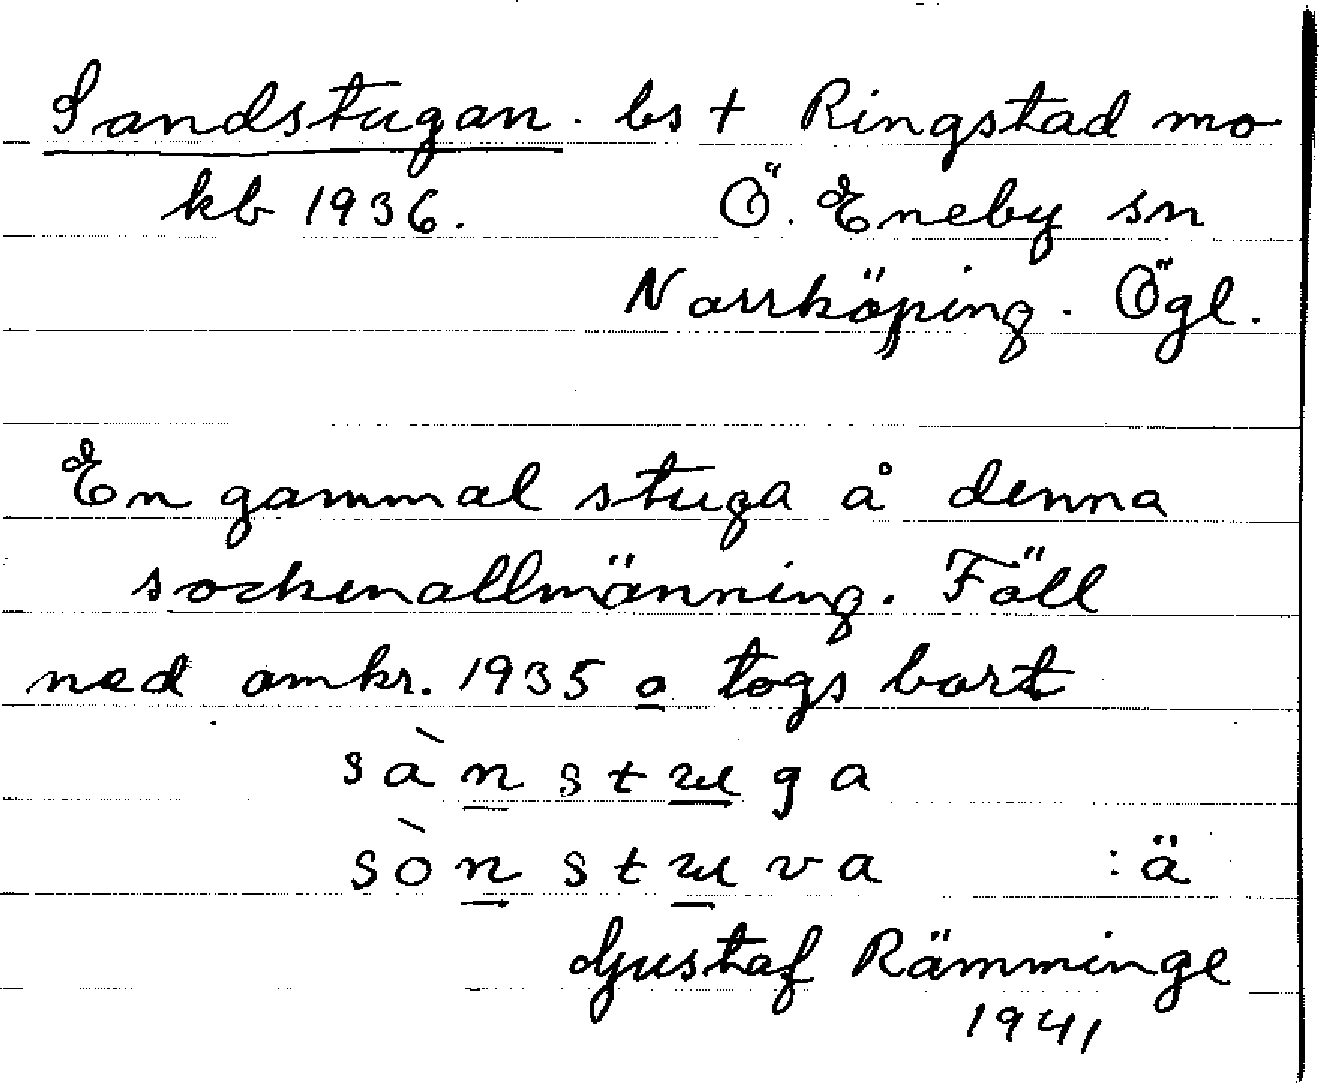 Sandstugan. bs † Ringstad mo
kb 1936. Ö. Eneby sn
Norrköping. Ögl.
En gammal stuga å denna
sockenallmänning. Föll
ned omkr. 1935 o togs bort
sànstuga
sònstuva :ä
Gustaf Rämminge
1941